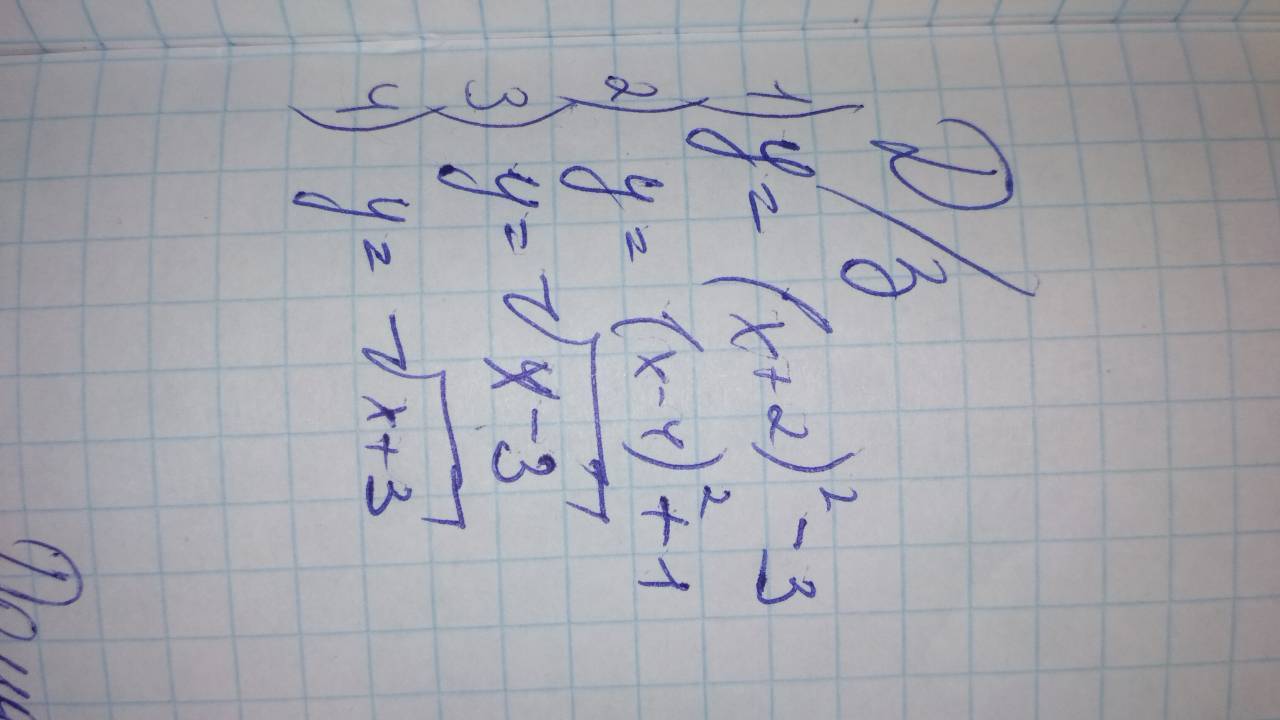 Д/З
1) y = (x+2)² -3
2) y = (x-4)² +1
3) y = √x-3
4) y = √x+3